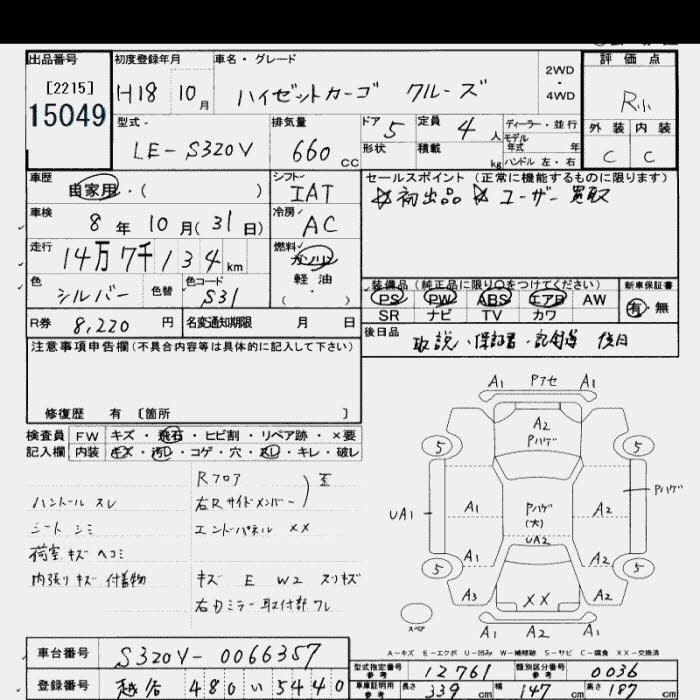 出品番号
[2215]
15049
初度登録年月
H18 10月
車名・グレード
ハイゼットカーゴ クルーズ
2WD
・
4WD
評価点
R小
外装 内装
C C
型式
LE-S320V
排気量
660 CC
ドア 5
定員 4 人
形状
積載 kg
ディーラー・並行
モデル
年式 年
ハンドル 左・右
車歴
自家用・( )
シフト
IAT
セールスポイント (正常に機能するものに限ります)
☆初出品 ☆ ユーザー買取
車検
8年10月(31日)
冷房
AC
走行
14万7千134 km
燃料
ガソリン
軽油
( )
色
シルバー
色替
色コード
S31
装備品 (純正品に限り○をつけてください)
PS PW ABS エアB AW
SR ナビ TV カワ
新車保証書
有・無
R券 8,220 円
名変通知期限 月 日
後日品
取説、保証書、記録簿 後日
注意事項申告欄 (不具合内容等は具体的に記入して下さい)
修復歴 有 〔箇所 〕
検査員 FW キズ・飛石・ヒビ割・リペア跡・×要
記入欄 内装 キズ・汚レ・コゲ・穴・スレ・キレ・破レ
Rフロア
右Rサイドメンバー
エンドパネル XX
ハンドル スレ
シート シミ
荷室 キズ ヘコミ
内張り キズ 付着物
キズ E W2 スリキズ
右Dミラー取付部ワレ
A1 Pアセ A1
A2
Pハゲ
5 5
A1 A2
UA1
Pハゲ
(大)
UA2
Pハゲ
A1 A2
5 5
A3 XX A2
A1 A2 A1
スペア
A-キズ E-エクボ U-凹み W-補修跡 S-サビ C-腐食 XX-交換済
車台番号 S320V-0066357
登録番号 越谷 480 い 5440
型式指定番号
参考
12761
類別区分番号
参考
0036
車庫証明用
参考
長さ 339 cm 幅 147 cm 高さ 187 cm